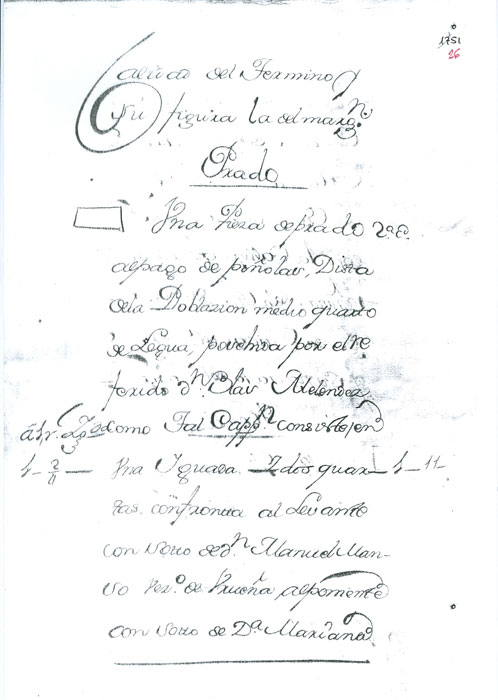 1751
26
calidad del Termino y
su figura la del margⁿ.
Prado
Una Pieza de prado 2ª C.
al pago de peñolas, Dista
de la Poblazion medio quarto
de Legua, por el Re
ferido Dⁿ. Melendez
como Tal Cappⁿ consiste, en
Una Yguada 2 dos quar 1-11-
tas. confronta al Levante
con otro de Dⁿ Manuel Man-
so de Rueña al pomente
con otro de Dª Mariana